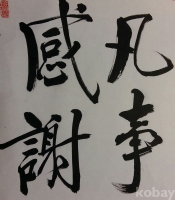 凡事
感謝
kobay